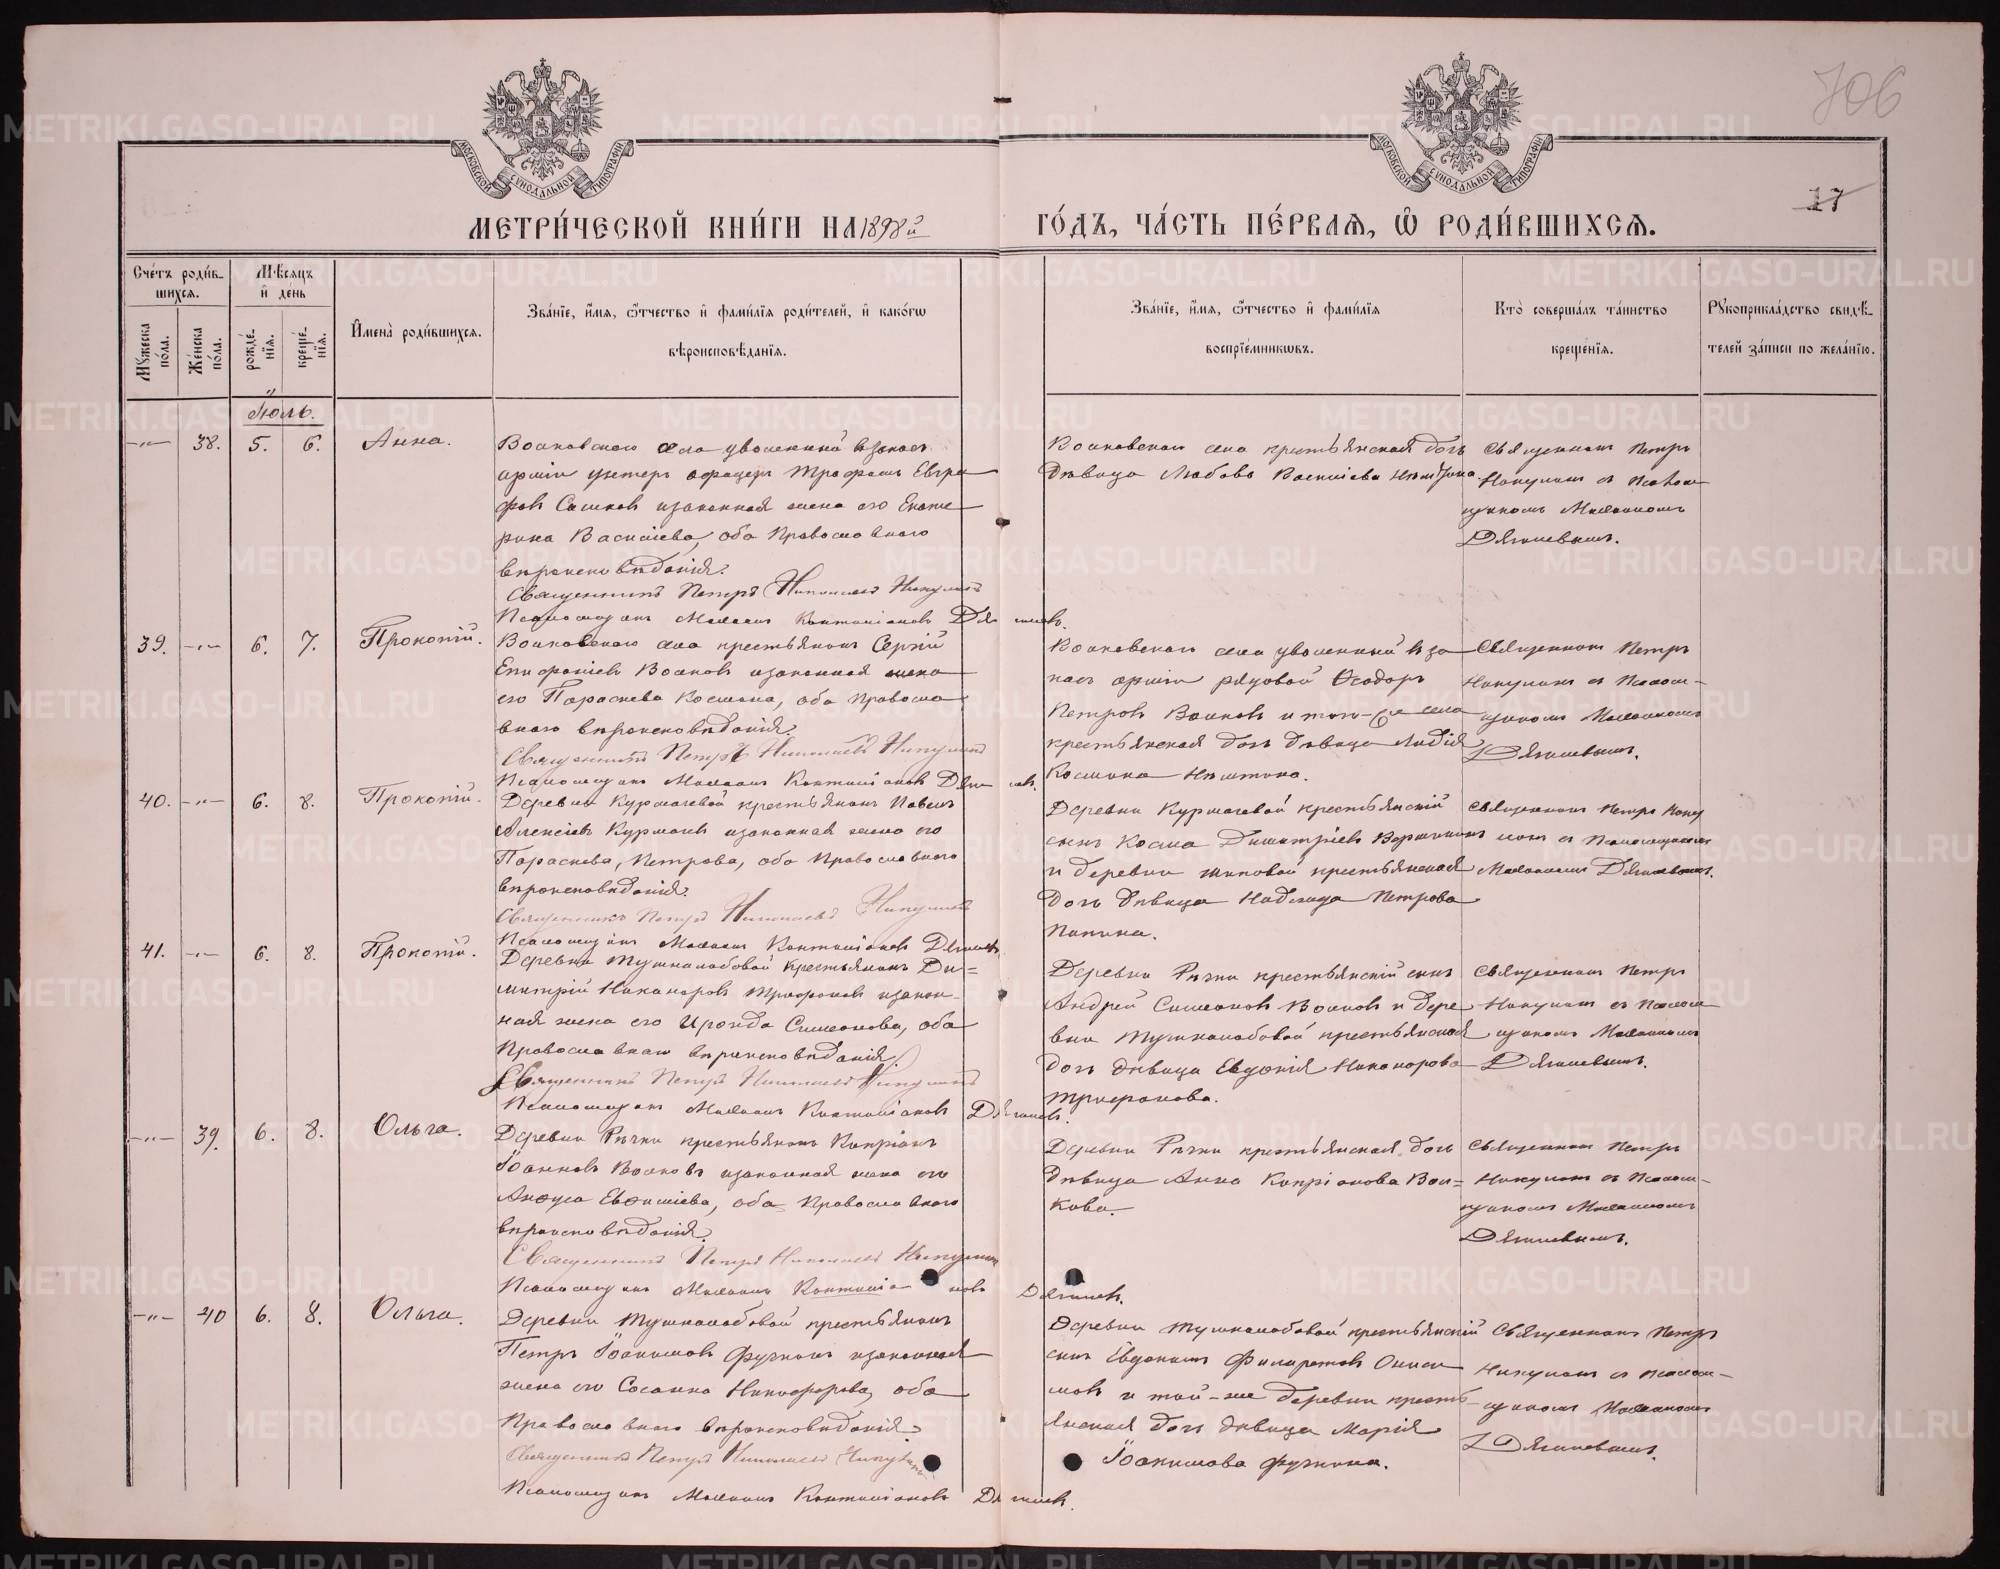 706
17
МОСКОВСКОЙ СѴНОДАЛЬНОЙ ТИПОГРАФІИ
МОСКОВСКОЙ СѴНОДАЛЬНОЙ ТИПОГРАФІИ
МЕТРИ́ЧЕСКОЙ КНИ́ГИ НА 1898й ГО́ДЪ, ЧА́СТЬ ПЕ́РВАЯ, Ѡ РОДИ́ВШИХСЯ.
Сче́тъ роди́в-
шихся.
Мѣ́сяцъ
и҆ де́нь
Мꙋ́жеска
по́ла.
Же́нска
по́ла.
рожде́-
нїя.
креще́-
нїя.
И҆мена̀ роди́вшихся.
Зва́нїе, и҆́мя, ѻ҆́тчество и҆ фами́лїя роди́телей, и҆ како́гѡ
вѣроисповѣ́данїя.
Зва́нїе, и҆́мя, ѻ҆́тчество и҆ фами́лїя
воспрїе́мникѡвъ.
Кто̀ соверша́лъ та́инство
креще́нїя.
Рꙋкоприкла́дство свидѣ́-
телей за́писи по жела́нїю.
Іюль.
-"- 38. 5. 6. Анна.
Волковскаго села уволенный в запас
арміи унтер офицер Трофим Евгра
фов Сашков и законная жена его Екате
рина Василіева, оба Православнаго
вѣроисповѣданія.
Священникъ Петръ Николаевъ Никулинъ
Псаломщик Михаил Дягилевъ.
Волковскаго села крестьянская дочь
дѣвица Любовь Василіева
Священник Петръ
Никулин с Псалом
щиком
Дягилевым.
39. -"- 6. 7. Прокопій.
Волковскаго села крестьянин Сергій
Епифаніев Волков и законная жена
его Параскева Космина, оба Правосла
внаго вѣроисповѣданія.
Священникъ Петръ Николаевъ Никулинъ
Псаломщик Дягилевъ.
Волковскаго села уволенный в за
пас арміи рядовой Ѳеодор
Петров Волков и того-же села
крестьянская дочь дѣвица Лидія
Космина
Священник Петръ
Никулин с Псалом-
щиком
Дягилевым.
40. -"- 6. 8. Прокопій.
Деревни Курмачевой крестьянин Павел
Алексіев Курмачев и законная жена его
Параскева, Петрова, оба Православнаго
вѣроисповѣданія.
Священникъ Петръ Николаевъ Никулинъ
Псаломщик Дягилевъ.
Деревни Курмачевой крестьянскій
сын Косма Димитріев
и деревни крестьянская
дочь дѣвица Надежда Петрова
Папина.
Священник Петр Нику
лин с Псаломщиком
Дягилевым.
41. -"- 6. 8. Прокопій.
Деревни Тушкалобовой крестьянин Ди=
митрій Никаноров Трифонов и закон-
ная жена его Ираида Симеонова, оба
Православнаго вѣроисповѣданія.
Священникъ Петръ Николаевъ Никулинъ
Псаломщик Дягилевъ.
Деревни Рѣчки крестьянскій сын
Андрей Симеонов Волков и дере
вни Тушкалобовой крестьянская
дочь дѣвица Евдокія Никанорова
Трифонова.
Священник Петръ
Никулин с Псалом
щиком
Дягилевым.
-"- 39. 6. 8. Ольга.
Деревни Рѣчки крестьянин Кипріан
Іоаннов Волков и законная жена его
Анфуса Евфиміева, оба Православнаго
вѣроисповѣданія.
Священникъ Петръ Николаевъ Никулинъ
Псаломщик Дягилевъ.
Деревни Рѣчки крестьянская дочь
дѣвица Анна Кипріанова Вол=
кова.
Священник Петръ
Никулин с Псалом-
щиком
Дягилевым.
-"- 40 6. 8. Ольга.
Деревни Тушкалобовой крестьянин
Петр Іоакимов Фучкин и законная
жена его Сосанна Никифорова, оба
Православнаго вѣроисповѣданія.
Священникъ Петръ Николаевъ Никулинъ
Псаломщик Дягилевъ.
Деревни Тушкалобовой крестьянскій
сын Евдоким Филаретов Ониси
мов и той-же деревни кресть-
янская дочь дѣвица Марія
Іоакимова Фучкина.
Священник Петръ
Никулин с Псалом-
щиком
Дягилевым.
METRIKI.GASO-URAL.RU